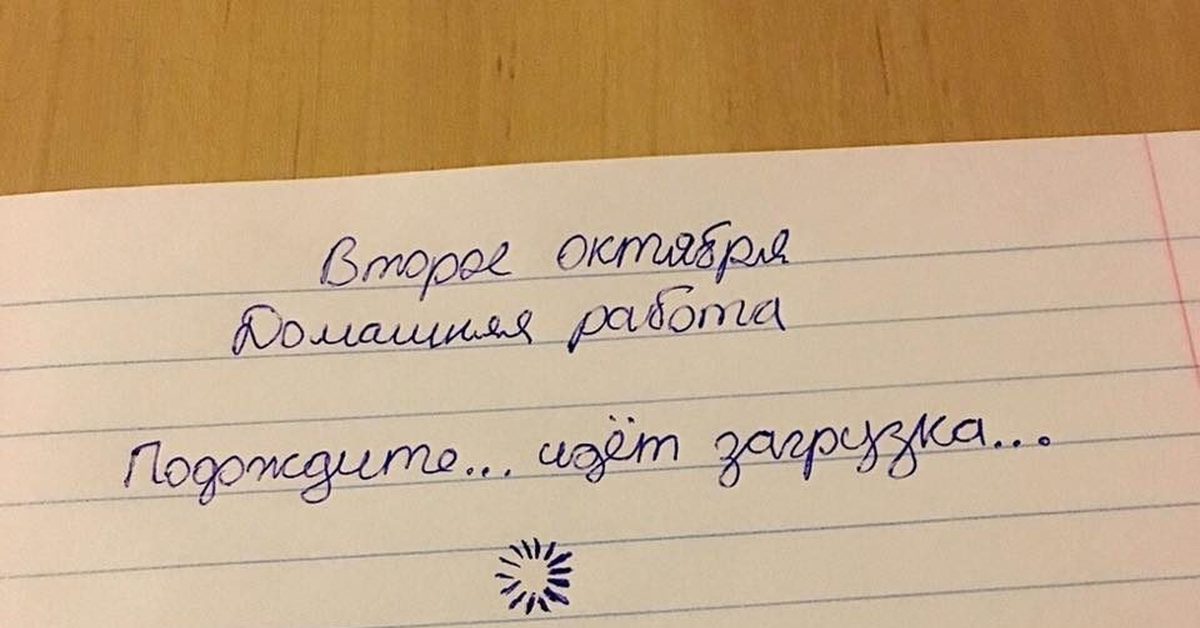 Второе октября
Домашняя работа
Подождите... идёт загрузка...